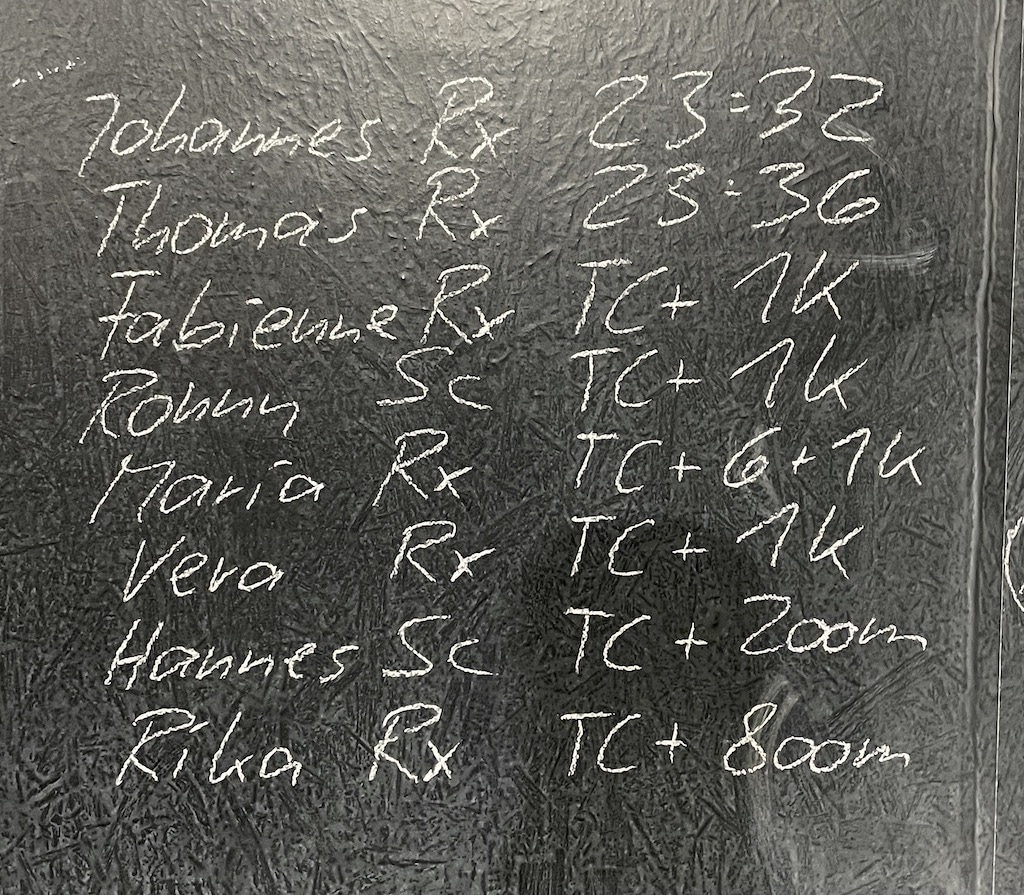 Johannes Rx 23:32
Thomas Rx 23:36
Fabienne Rx TC + 1K
Ronny Sc TC + 1k
Maria Rx TC + 6 + 1k
Vera Rx TC + 1k
Hannes Sc TC + 200m
Rika Rx TC + 800m